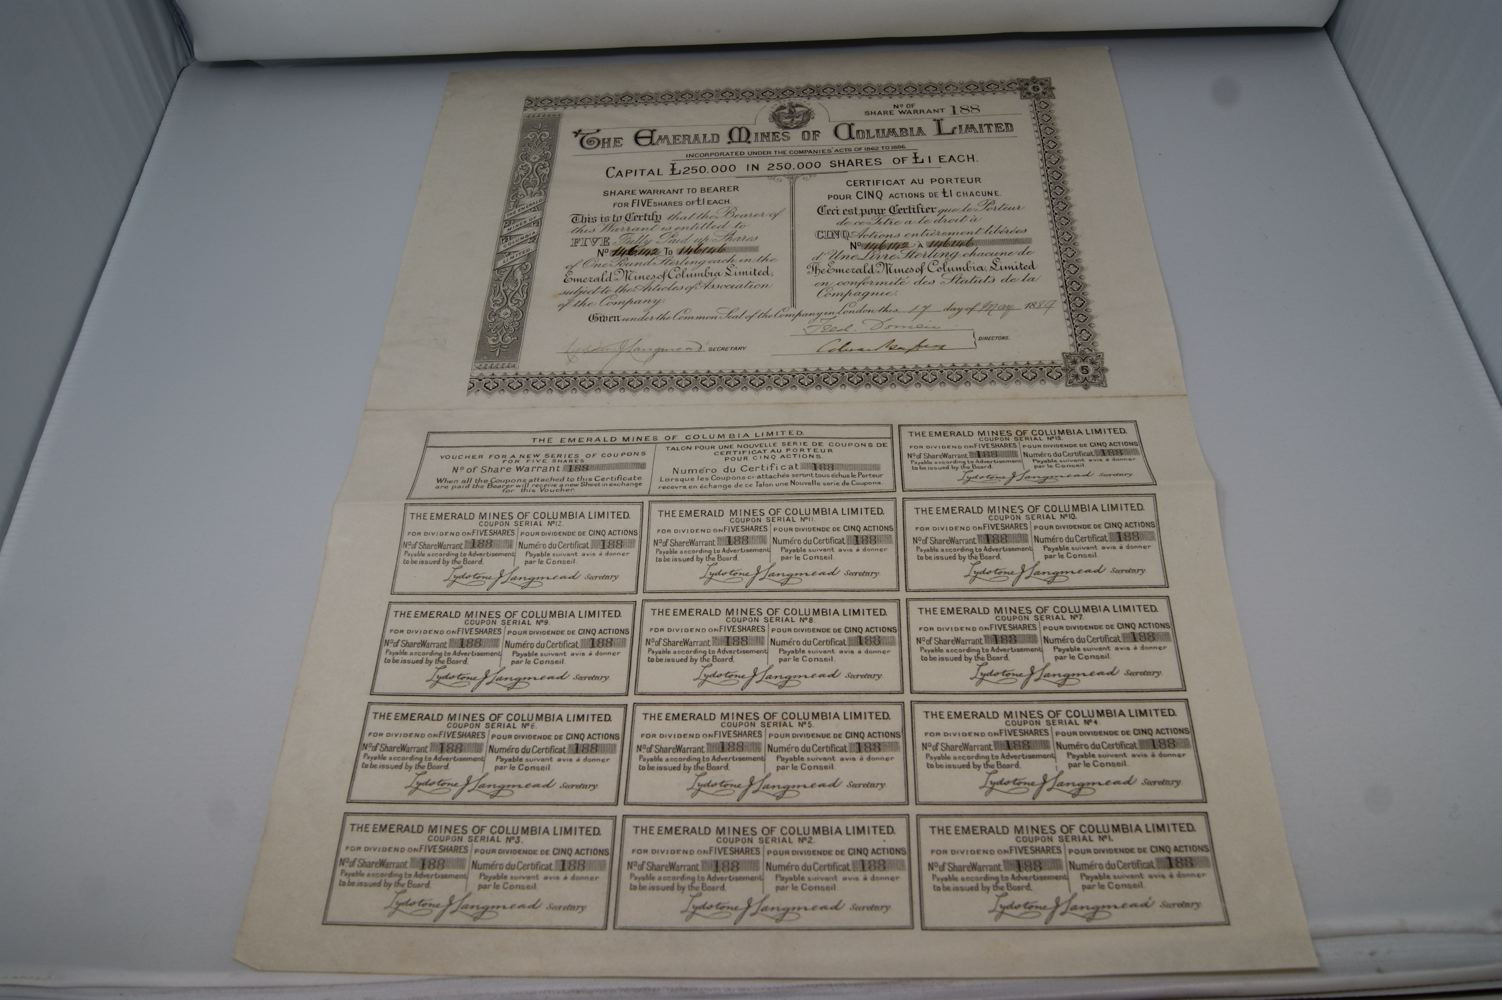 Nº OF
SHARE WARRANT 188
THE EMERALD MINES OF COLUMBIA LIMITED
INCORPORATED UNDER THE COMPANIES' ACTS OF 1862 TO 1886.
CAPITAL £250.000 IN 250,000 SHARES OF £1 EACH.
SHARE WARRANT TO BEARER
FOR FIVE SHARES OF £1 EACH.
This is to Certify that the Bearer of
this Warrant is entitled to
FIVE Fully Paid up Shares
Nº To
of One Pound Sterling each in the
Emerald Mines of Columbia Limited,
subject to the Articles of Association
of the Company.
CERTIFICAT AU PORTEUR
POUR CINQ ACTIONS DE £1 CHACUNE.
Ceci est pour Certifier que le Porteur
de ce Titre a le droit à
CINQ Actions entièrement libérées
Nº À
d'Une Livre Sterling chacune de
The Emerald Mines of Columbia, Limited
en conformité des Statuts de la
Compagnie.
Given under the Common Seal of the Company in London this 17 day of May 18
SECRETARY
DIRECTORS.
5
5
THE EMERALD MINES OF COLUMBIA LIMITED.
VOUCHER FOR A NEW SERIES OF COUPONS
FOR FIVE SHARES
Nº of Share Warrant 188
When all the Coupons attached to this Certificate
are paid the Bearer will receive a new Sheet in exchange
for this Voucher
TALON POUR UNE NOUVELLE SERIE DE COUPONS DE
CERTIFICAT AU PORTEUR
POUR CINQ ACTIONS.
Numéro du Certificat 188
Lorsque les Coupons ci attachés seront tous échus le Porteur
recevra en échange de ce Talon une Nouvelle serie de Coupons.
THE EMERALD MINES OF COLUMBIA LIMITED.
COUPON SERIAL Nº13.
FOR DIVIDEND ON FIVE SHARES POUR DIVIDENDE DE CINQ ACTIONS
Nº of Share Warrant 188 Numéro du Certificat 188
Payable according to Advertisement Payable suivant avis à donner
to be issued by the Board. par le Conseil.
Lydstone J Langmead Secretary
THE EMERALD MINES OF COLUMBIA LIMITED.
COUPON SERIAL Nº12.
FOR DIVIDEND ON FIVE SHARES POUR DIVIDENDE DE CINQ ACTIONS
Nº of Share Warrant 188 Numéro du Certificat 188
Payable according to Advertisement Payable suivant avis à donner
to be issued by the Board. par le Conseil.
Lydstone J Langmead Secretary
THE EMERALD MINES OF COLUMBIA LIMITED.
COUPON SERIAL Nº11.
FOR DIVIDEND ON FIVE SHARES POUR DIVIDENDE DE CINQ ACTIONS
Nº of Share Warrant 188 Numéro du Certificat 188
Payable according to Advertisement Payable suivant avis à donner
to be issued by the Board. par le Conseil.
Lydstone J Langmead Secretary
THE EMERALD MINES OF COLUMBIA LIMITED.
COUPON SERIAL Nº10.
FOR DIVIDEND ON FIVE SHARES POUR DIVIDENDE DE CINQ ACTIONS
Nº of Share Warrant 188 Numéro du Certificat 188
Payable according to Advertisement Payable suivant avis à donner
to be issued by the Board. par le Conseil.
Lydstone J Langmead Secretary
THE EMERALD MINES OF COLUMBIA LIMITED.
COUPON SERIAL Nº9.
FOR DIVIDEND ON FIVE SHARES POUR DIVIDENDE DE CINQ ACTIONS
Nº of Share Warrant 188 Numéro du Certificat 188
Payable according to Advertisement Payable suivant avis à donner
to be issued by the Board. par le Conseil.
Lydstone J Langmead Secretary
THE EMERALD MINES OF COLUMBIA LIMITED.
COUPON SERIAL Nº8.
FOR DIVIDEND ON FIVE SHARES POUR DIVIDENDE DE CINQ ACTIONS
Nº of Share Warrant 188 Numéro du Certificat 188
Payable according to Advertisement Payable suivant avis à donner
to be issued by the Board. par le Conseil.
Lydstone J Langmead Secretary
THE EMERALD MINES OF COLUMBIA LIMITED.
COUPON SERIAL Nº7.
FOR DIVIDEND ON FIVE SHARES POUR DIVIDENDE DE CINQ ACTIONS
Nº of Share Warrant 188 Numéro du Certificat 188
Payable according to Advertisement Payable suivant avis à donner
to be issued by the Board. par le Conseil.
Lydstone J Langmead Secretary
THE EMERALD MINES OF COLUMBIA LIMITED.
COUPON SERIAL Nº6.
FOR DIVIDEND ON FIVE SHARES POUR DIVIDENDE DE CINQ ACTIONS
Nº of Share Warrant 188 Numéro du Certificat 188
Payable according to Advertisement Payable suivant avis à donner
to be issued by the Board. par le Conseil.
Lydstone J Langmead Secretary
THE EMERALD MINES OF COLUMBIA LIMITED.
COUPON SERIAL Nº5.
FOR DIVIDEND ON FIVE SHARES POUR DIVIDENDE DE CINQ ACTIONS
Nº of Share Warrant 188 Numéro du Certificat 188
Payable according to Advertisement Payable suivant avis à donner
to be issued by the Board. par le Conseil.
Lydstone J Langmead Secretary
THE EMERALD MINES OF COLUMBIA LIMITED.
COUPON SERIAL Nº4.
FOR DIVIDEND ON FIVE SHARES POUR DIVIDENDE DE CINQ ACTIONS
Nº of Share Warrant 188 Numéro du Certificat 188
Payable according to Advertisement Payable suivant avis à donner
to be issued by the Board. par le Conseil.
Lydstone J Langmead Secretary
THE EMERALD MINES OF COLUMBIA LIMITED.
COUPON SERIAL Nº3.
FOR DIVIDEND ON FIVE SHARES POUR DIVIDENDE DE CINQ ACTIONS
Nº of Share Warrant 188 Numéro du Certificat 188
Payable according to Advertisement Payable suivant avis à donner
to be issued by the Board. par le Conseil.
Lydstone J Langmead Secretary
THE EMERALD MINES OF COLUMBIA LIMITED.
COUPON SERIAL Nº2.
FOR DIVIDEND ON FIVE SHARES POUR DIVIDENDE DE CINQ ACTIONS
Nº of Share Warrant 188 Numéro du Certificat 188
Payable according to Advertisement Payable suivant avis à donner
to be issued by the Board. par le Conseil.
Lydstone J Langmead Secretary
THE EMERALD MINES OF COLUMBIA LIMITED.
COUPON SERIAL Nº1.
FOR DIVIDEND ON FIVE SHARES POUR DIVIDENDE DE CINQ ACTIONS
Nº of Share Warrant 188 Numéro du Certificat 188
Payable according to Advertisement Payable suivant avis à donner
to be issued by the Board. par le Conseil.
Lydstone J Langmead Secretary